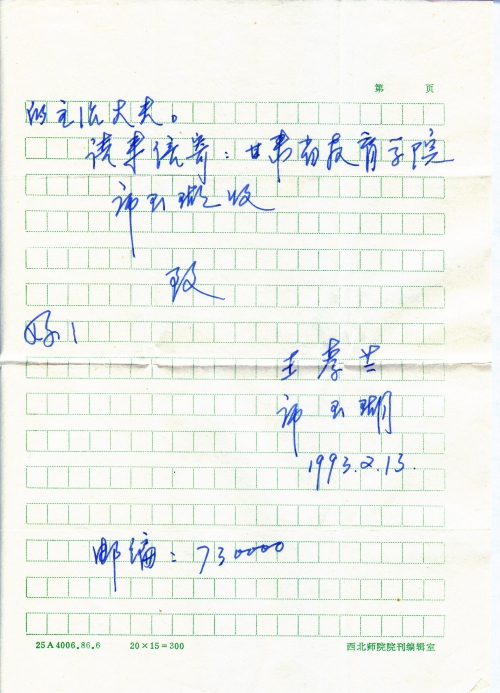 第 页
的主治大夫。
请来信寄：甘肃省教育学院
许玉瑚收
致
好！
王孝兰
许玉瑚
1993.2.13.
邮编：730000
25A4006.86.6 20×15=300 西北师院院刊编辑室